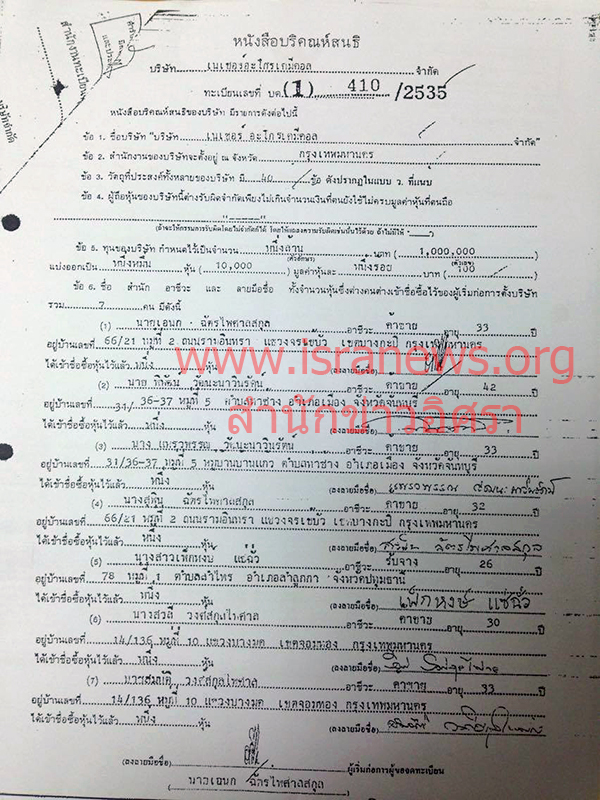 หนังสือบริคณห์สนธิ
บริษัท เนเชอร์อะโกรเคมีคอล จำกัด
ทะเบียนเลขที่ บค. (1) 410 /2535
หนังสือบริคณห์สนธิของบริษัท มีรายการดังต่อไปนี้
ข้อ 1. ชื่อบริษัท "บริษัท เนเชอร์ อะโกรเคมีคอล จำกัด"
ข้อ 2. สำนักงานของบริษัทจะตั้งอยู่ ณ จังหวัด กรุงเทพมหานคร
ข้อ 3. วัตถุที่ประสงค์ทั้งหลายของบริษัท มี ข้อ ดังปรากฏในแบบ ว. ที่แนบ
ข้อ 4. ผู้ถือหุ้นของบริษัทนี้ต่างรับผิดจำกัดเพียงไม่เกินจำนวนเงินที่ตนยังใช้ไม่ครบมูลค่าหุ้นที่ตนถือ
ข้อ 5. ทุนของบริษัท กำหนดไว้เป็นจำนวน หนึ่งล้าน บาท ( 1,000,000 )
แบ่งออกเป็น หนึ่งหมื่น หุ้น ( 10,000 ) มูลค่าหุ้นละ หนึ่งร้อย บาท ( 100 )
ข้อ 6. ชื่อ สำนัก อาชีวะ และ ลายมือชื่อ ทั้งจำนวนหุ้นซึ่งต่างคนต่างเข้าชื่อซื้อไว้ของผู้เริ่มก่อการตั้งบริษัท
รวม 7 คน มีดังนี้
(1) นายเอนก ฉัตรไพศาลสกุล อาชีวะ ค้าขาย อายุ 33 ปี
อยู่บ้านเลขที่ 66/21 หมู่ที่ 2 ถนนรามอินทรา แขวงจรเข้บัว เขตบางกะปิ กรุงเทพมหานคร
www.isranews.org
ได้เข้าชื่อซื้อหุ้นไว้แล้ว หนึ่ง หุ้น (ลงลายมือชื่อ)
(2) นาย วัฒนะนาวินรัตน์ อาชีวะ ค้าขาย อายุ 42 ปี
อยู่บ้านเลขที่ 31/36-37 หมู่ที่ 5 ตำบลท่าช้าง อำเภอเมือง จังหวัดจันทบุรี
สำนักข่าวอิศรา
ได้เข้าชื่อซื้อหุ้นไว้แล้ว หนึ่ง หุ้น (ลงลายมือชื่อ)
(3) นาง แพรวพรรณ วัฒนะนาวินรัตน์ อาชีวะ ค้าขาย อายุ 33 ปี
อยู่บ้านเลขที่ 31/36-37 หมู่ที่ 5 ตำบลท่าช้าง อำเภอเมือง จังหวัดจันทบุรี
ได้เข้าชื่อซื้อหุ้นไว้แล้ว หนึ่ง หุ้น (ลงลายมือชื่อ)
(4) ฉัตรไพศาลสกุล อาชีวะ ค้าขาย อายุ 32 ปี
อยู่บ้านเลขที่ 66/21 หมู่ที่ 2 ถนนรามอินทรา แขวงจรเข้บัว เขตบางกะปิ กรุงเทพมหานคร
ได้เข้าชื่อซื้อหุ้นไว้แล้ว หนึ่ง หุ้น (ลงลายมือชื่อ)
(5) นางสาวเพ็กหงษ์ แซ่ฉั่ว อาชีวะ รับจ้าง อายุ 26 ปี
อยู่บ้านเลขที่ 78 หมู่ที่ 1 อำเภอลำลูกกา จังหวัดปทุมธานี
ได้เข้าชื่อซื้อหุ้นไว้แล้ว หนึ่ง หุ้น (ลงลายมือชื่อ) เพ็กหงษ์ แซ่ฉั่ว
(6) วงศ์สกุลไพศาล อาชีวะ ค้าขาย อายุ 30 ปี
อยู่บ้านเลขที่ 14/136 หมู่ที่ 10 แขวงบางมด เขตจอมทอง กรุงเทพมหานคร
ได้เข้าชื่อซื้อหุ้นไว้แล้ว หนึ่ง หุ้น (ลงลายมือชื่อ)
(7) วงศ์สกุลไพศาล อาชีวะ ค้าขาย อายุ 33 ปี
อยู่บ้านเลขที่ 14/136 หมู่ที่ 10 แขวงบางมด เขตจอมทอง กรุงเทพมหานคร
ได้เข้าชื่อซื้อหุ้นไว้แล้ว หนึ่ง หุ้น (ลงลายมือชื่อ)
(ลงลายมือชื่อ) ผู้เริ่มก่อการผู้ขอจดทะเบียน
( นายเอนก ฉัตรไพศาลสกุล )